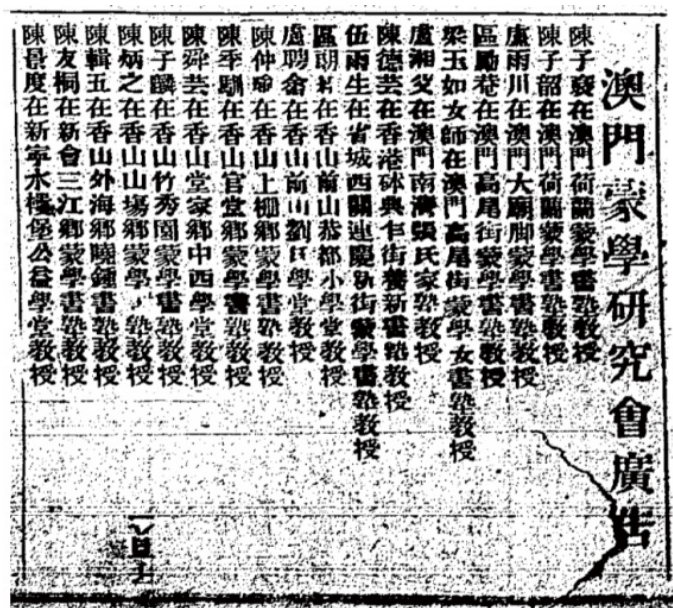 澳門蒙學研究會廣告
陳子裦在澳門荷蘭蒙學書塾教授
陳子韶在澳門荷蘭蒙學書塾教授
盧雨川在澳門大廟脚蒙學書塾教授
區勵菴在澳門高尾街蒙學書塾教授
梁玉如女師在澳門高尾街蒙學女書塾教授
盧湘父在澳門南灣張氏家塾教授
陳德芸在香港砵典乍街養新書塾教授
伍雨生在省城西關連慶新街蒙學書塾教授
區朝在香山前山恭都小學堂教授
盧聘在香山前山劉氏學堂教授
陳仲在香山上柵鄉蒙學書塾教授
陳季馴在香山官堂鄉蒙學書塾教授
陳舜芸在香山堂家鄉中西學堂教授
陳子麟在香山竹秀園蒙學書塾教授
陳炳之在香山山塲鄉蒙學塾教授
陳輯五在香山外海鄉曉鍾書塾教授
陳友桐在新會三江鄉蒙學書塾教授
陳度在新寧水樓堡公益學堂教授